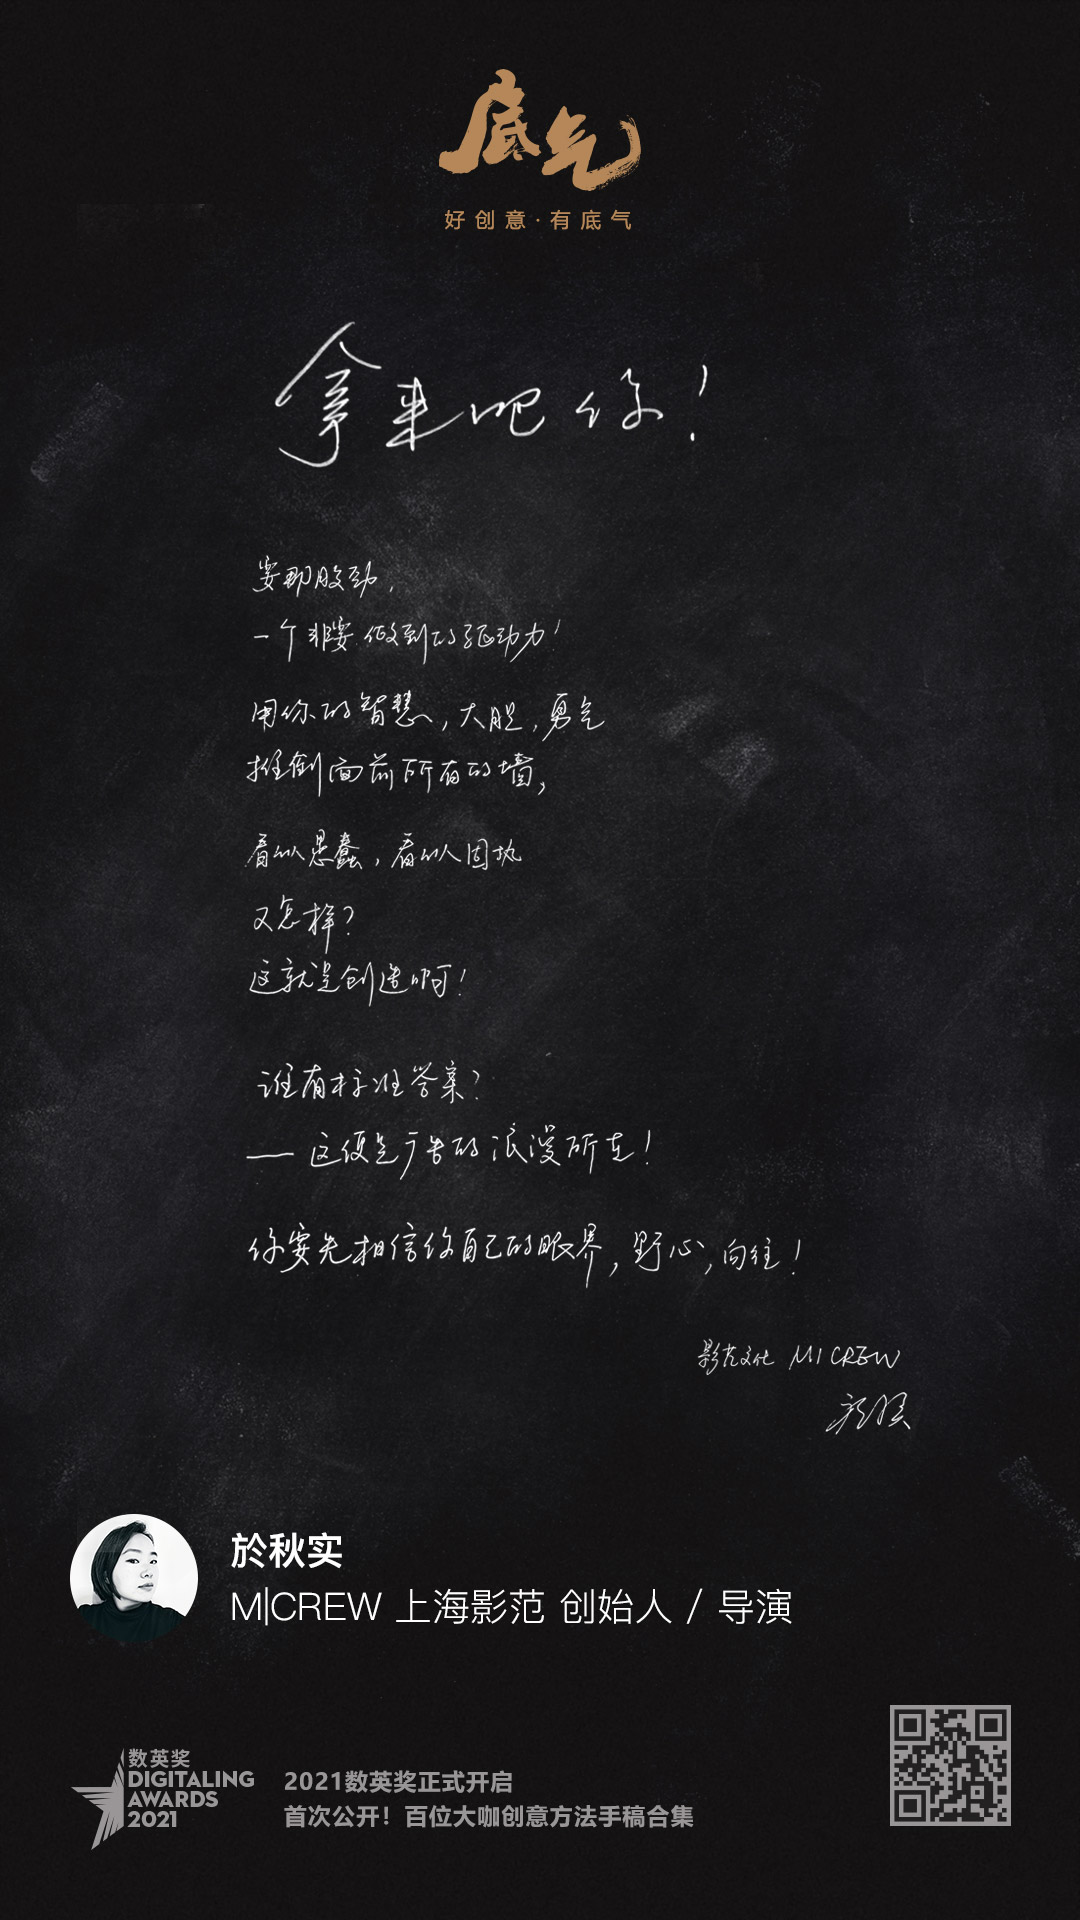 底气
好创意·有底气
拿来吧你！
要那股劲，
一个非要做到的驱动力！
用你的智慧，大胆，勇气
推倒面前所有的墙，
看似愚蠢，看似固执
又怎样？
这就是创造啊！
谁有标准答案？
——这便是广告的浪漫所在！
你要先相信你自己的眼界，野心，向往！
影范文化 MICREW
於秋实
M|CREW 上海影范 创始人 / 导演
数英奖
DIGITALING
AWARDS
2021
2021数英奖正式开启
首次公开！百位大咖创意方法手稿合集